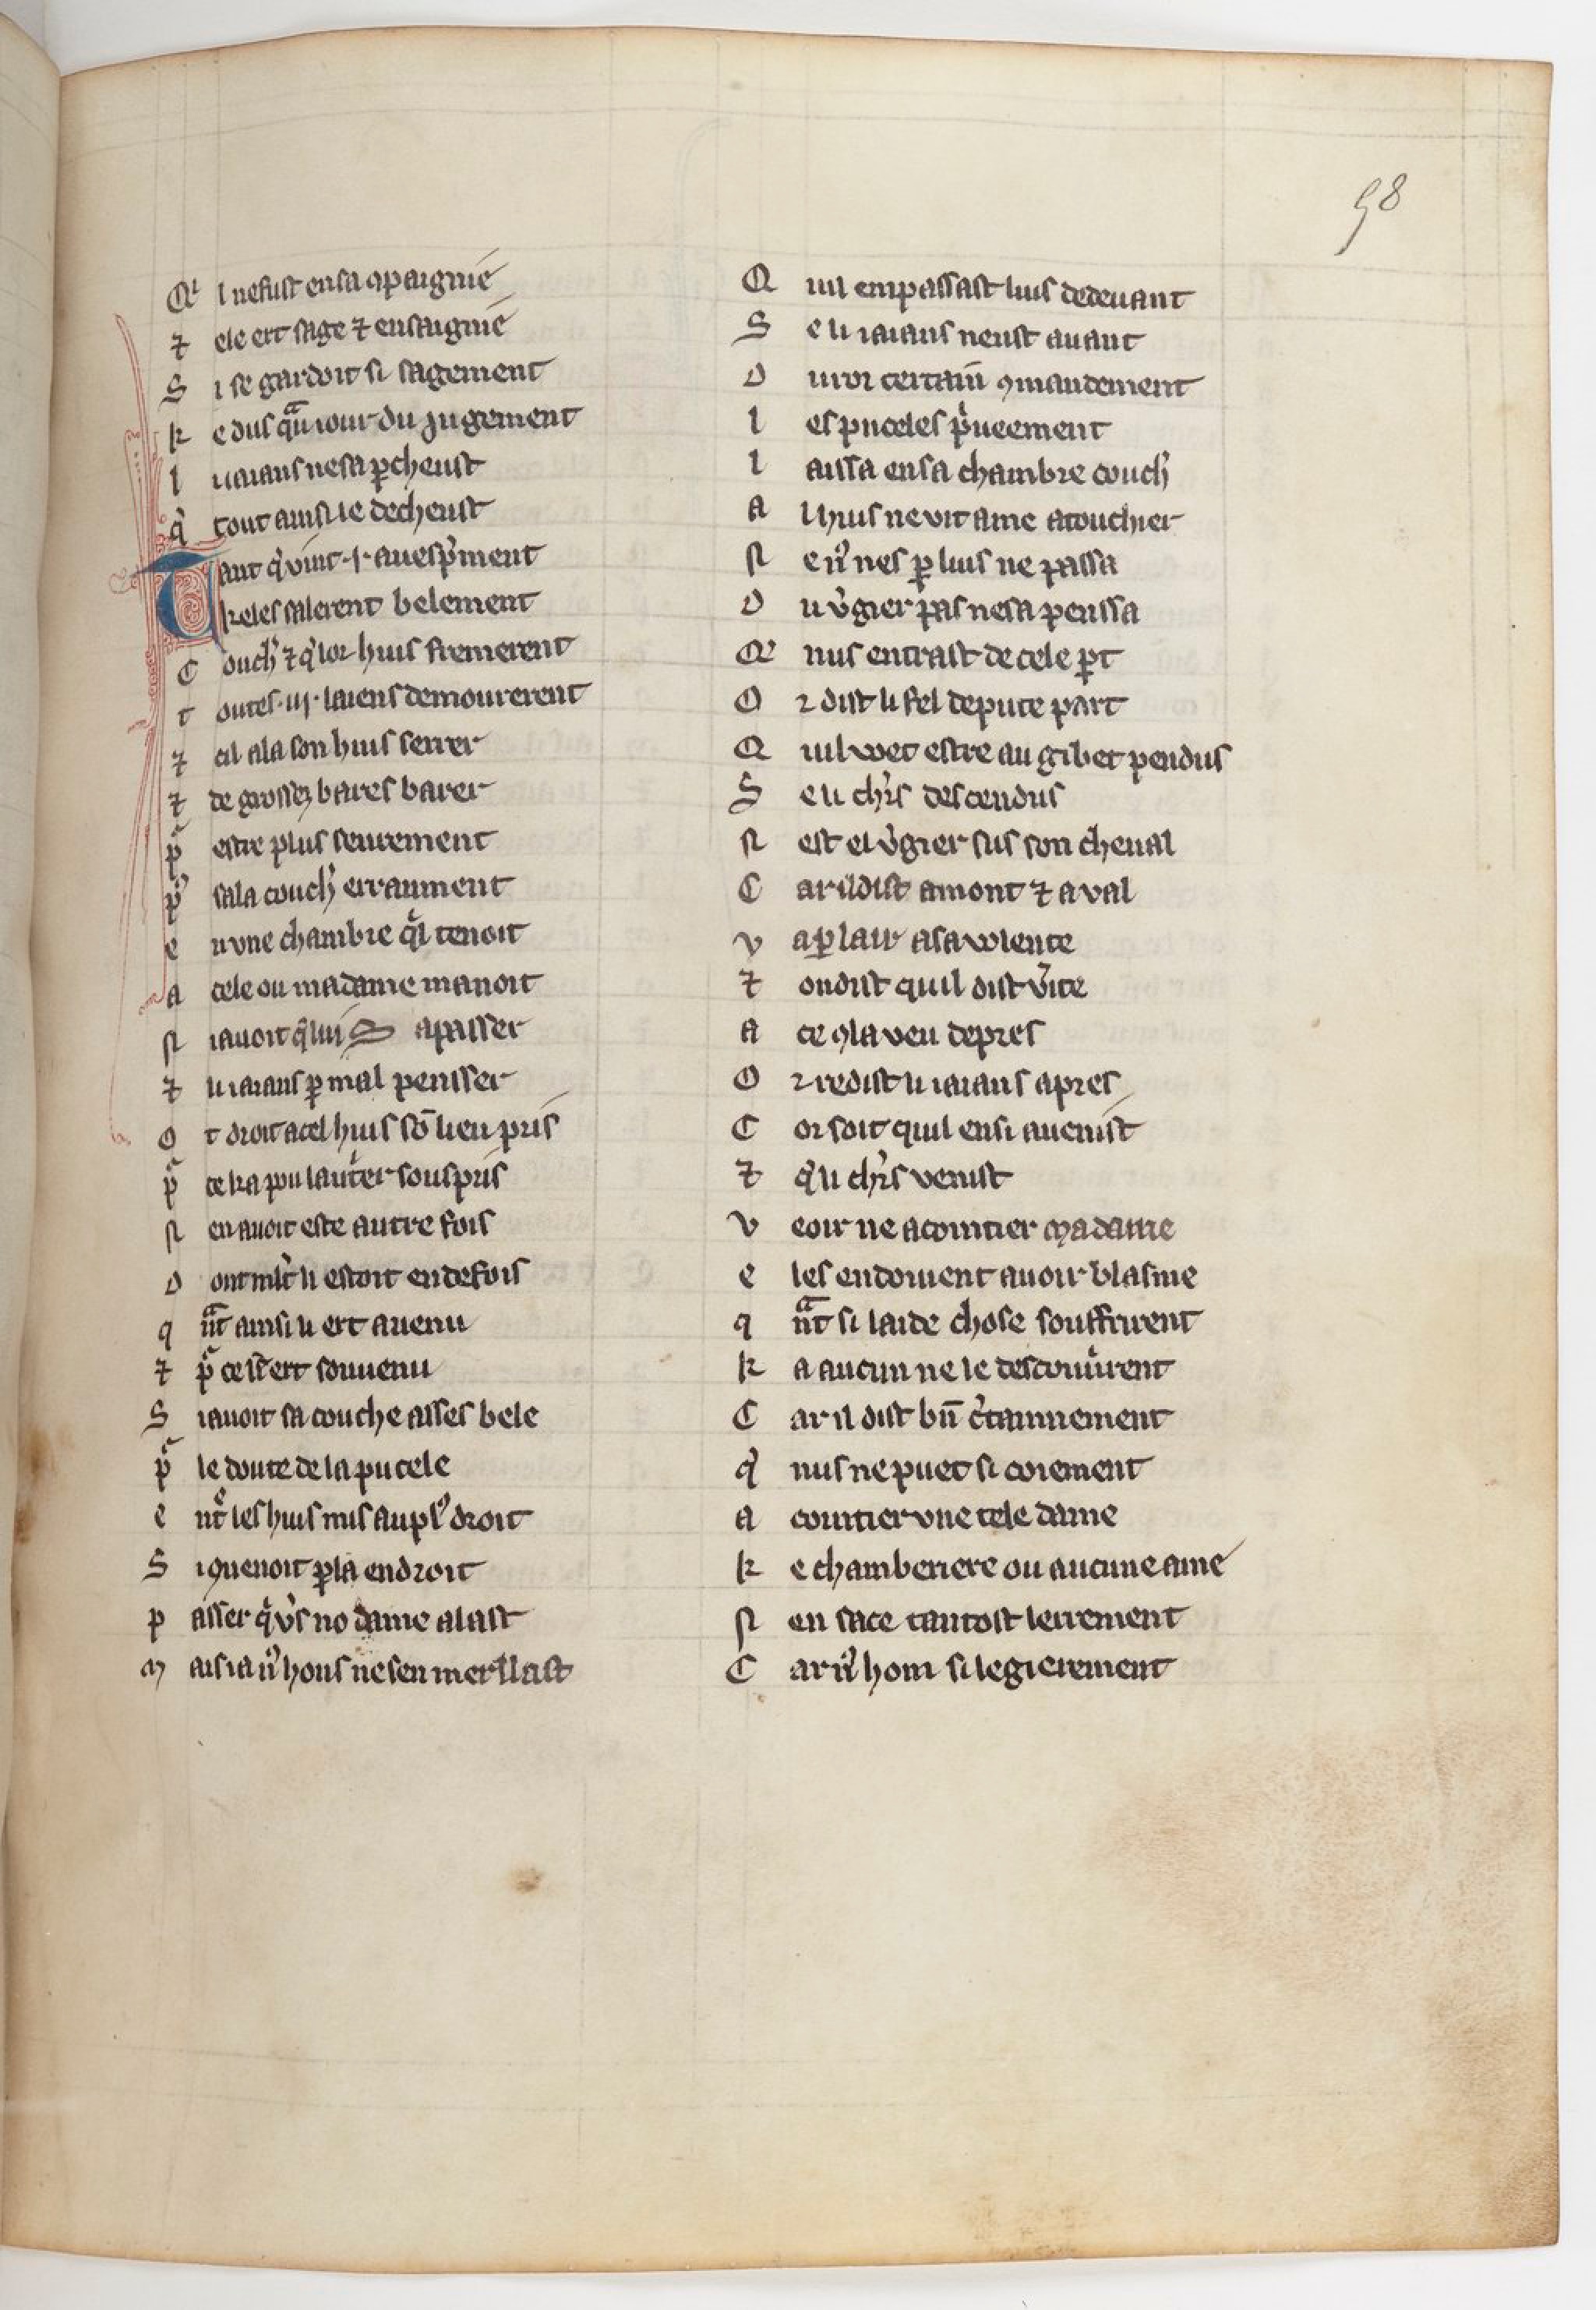 58
Qi l ne fust en sa ꝯpaignie
⁊ ele ert sage ⁊ ensaignie
Si se gardoit si sagement
ke dusqᵃu iour du jugement
li iaians ne sa ꝑcheust
q̉ tout ainsi le decheust
Tant q̉ vint .i. auesp̉ment
keles salerent belement
Couch̉ ⁊ q̉ lor huis fremerent
toutes .iij. laiens demourerent
⁊ cil ala son huis serrer
⁊ de grosses bares barer
pᵒ estre plus seurement
pᵒ sala couch̉ erraument
en vne chambre qͥl tenoit
a cele ou madame manoit
si auoit q̉ lui S apasser
⁊ li iaians ꝑ mal pensser
Ot droit a cel huis sō lieu pris
pᵒ ce ka pou laut̉er souspris
en auoit este autre fois
Dont mlt̉ li estoit en defois
qᵃnt ainsi li ert auenu
⁊ pᵒ ce li ert souuenu
Si auoit sa couche asses bele
pᵒ le doute de la pucele
entͤ les huis mis au pl᾿ droit
Si ꝯuenoit ꝑ la endroit
passer q̉ v̉s no dame alast
mais ia n᾿ hons ne sen merllast
Qui l empassast luis dedeuant
Se li iaians neust auant
Diuror certain ꝯmandement
les puceles pͥueement
laissa en sa chambre couch̉
a lhuis ne vit ame atouchier
ne n᾿ nes ꝑ luis ne passa
Du v̉gier pas ne sa penssa
Qe nus entrast de cele ꝑt
Or dist li fel de pute part
Quil woet estre au gibet pendus
Se li chr̉s descendus
Nest el v̉gier sus son cheual
Car il dist amont ⁊ aval
va ꝑ lair a sa volente
⁊ on dist quil dist v̉ite
a ce ꝯ la veu de pres
Or redist li iaians apres
Cor soit quil ensi auenist
⁊ q̉ li chr̉s venist
veoir ne acointier madame
eles en doiuent auoir blasme
qᵃnt si laide chose souffrirent
ka aucun ne le descouurirent
Car il dist bn̄ c̉tainnement
q̉ nus ne puet si coiement
acointier vne tele dame
ke chamberiere ou aucune ame
nen sace tantost lerrement
Car n᾿ hom si legierement